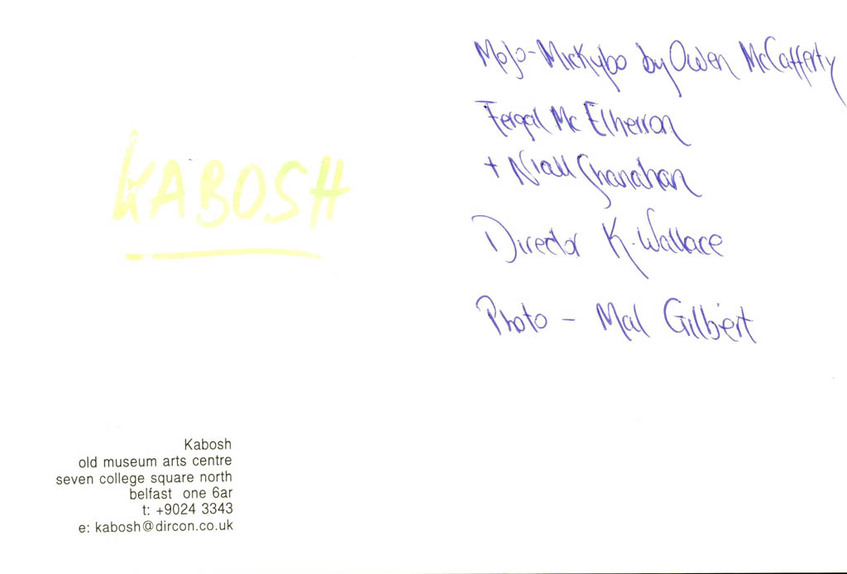 KABOSH
Kabosh
old museum arts centre
seven college square north
belfast one 6ar
t: +9024 3343
e: kabosh@dircon.co.uk
Mojo-Mickybo by Owen McCafferty
Fergal Mc Elherron
+ Niall Shanahan
Director K. Wallace
Photo - Mal Gilbert